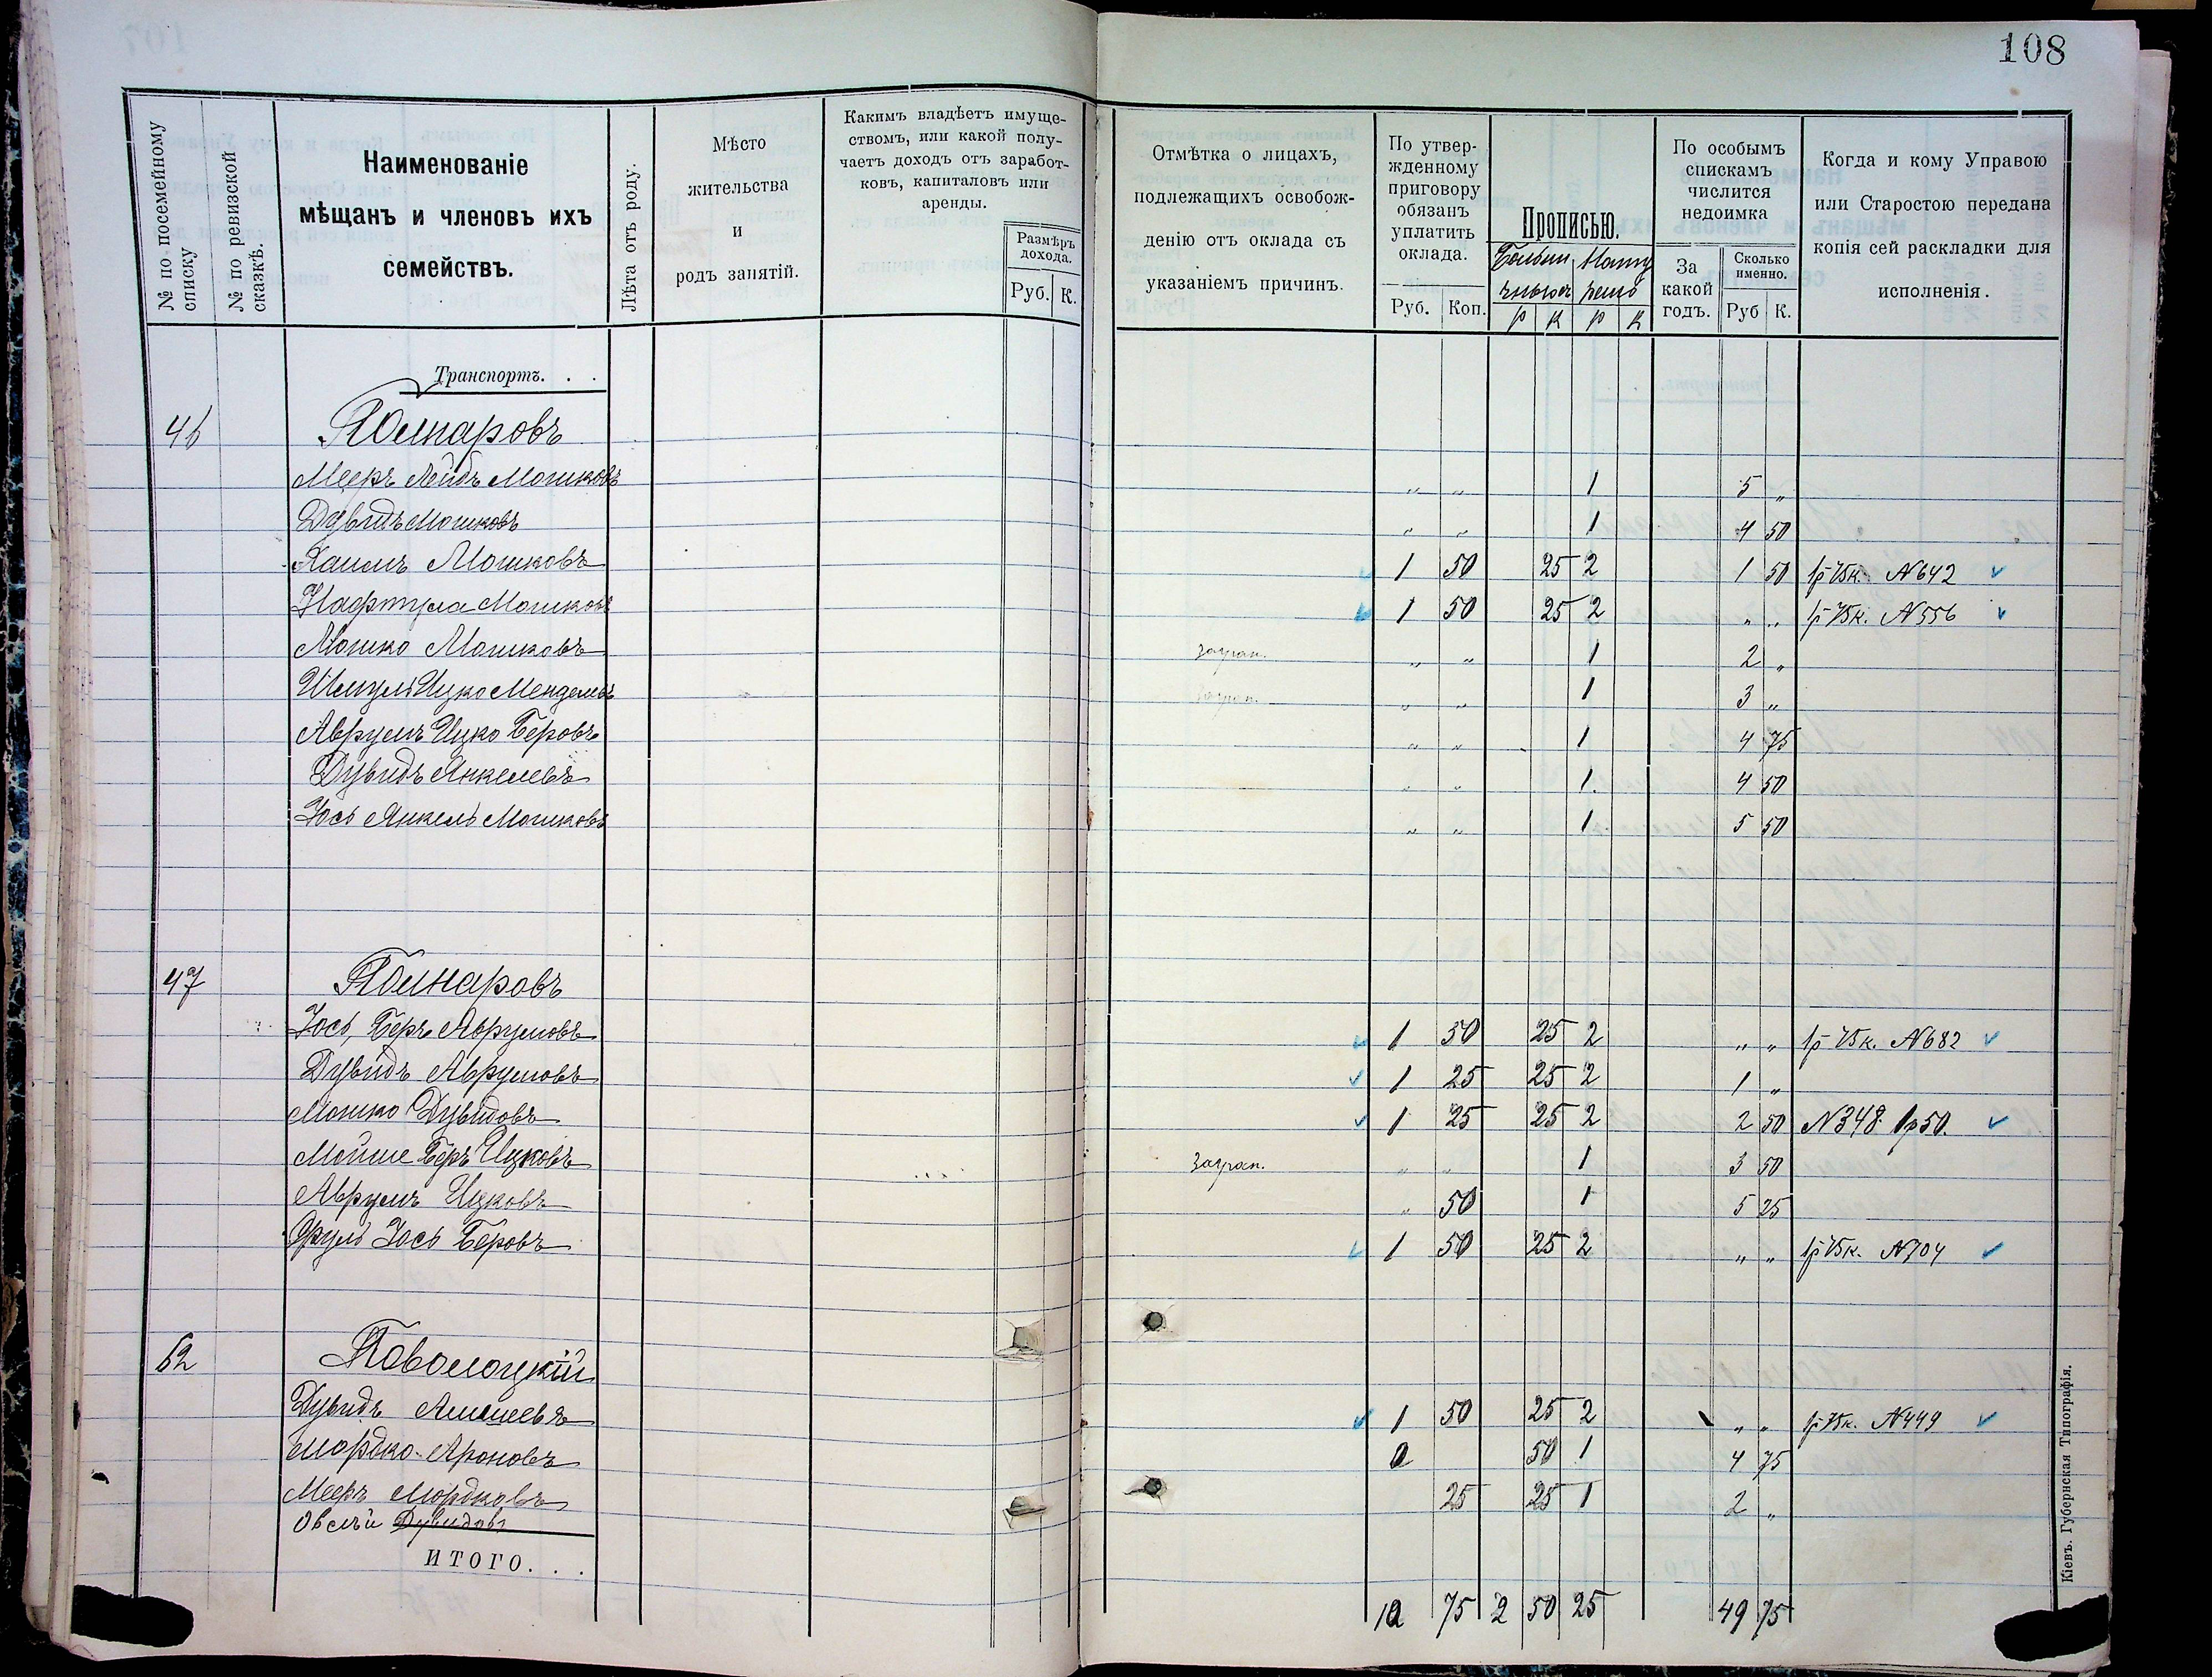 108
№ по посемейному списку
№ по ревизской сказкѣ.
Наименованіе мѣщанъ и членовъ ихъ семействъ.
Лѣта отъ роду.
Мѣсто жительства и родъ занятій.
Какимъ владѣетъ имуще-
ствомъ, или какой полу-
чаетъ доходъ отъ заработ-
ковъ, капиталовъ или
аренды.
Размѣръ дохода.
Руб. К.
Отмѣтка о лицахъ,
подлежащихъ освобож-
денію отъ оклада съ
указаніемъ причинъ.
По утвер-
жденному
приговору
обязанъ
уплатить
оклада.
Руб. Коп.
Прописью.
р к р к
По особымъ
спискамъ
числится
недоимка
За какой годъ.
Сколько именно.
Руб К.
Когда и кому Управою
или Старостою передана
копія сей раскладки для
исполненія.
Транспортъ. . .
46
Мееръ Лейбъ Мошковъ " " 1 5 "
Дувидъ Мошковъ " " 1 4 50
Хаимъ Мошковъ 1 50 25 2 1 50 1р 75к. №642
Нафтула Мошковъ 1 50 25 2 " " 1р 75к. №556
Мошко Мошковъ загран. " " 1 2 "
Шмуль Ицко Менделевъ загран. " " 1 3 "
Аврумъ Ицко Беровъ " " 1 4 75
Дувидъ Янкелевъ " " 1. 4 50
Іось Янкель Мошковъ " " 1 5 50
47
Іось, Беръ Аврумовъ 1 50 25 2 " " 1р 75к. №682
Дувидъ Аврумовъ 1 25 25 2 1 "
Мошко Дувидовъ 1 25 25 2 2 50 №348 1р50.
Мойше Беръ Ицковъ загран. " " 1 3 50
Аврумъ Ицковъ " 50 1 5 25
Сруль Іось Беровъ 1 50 25 2 " " 1р 75к. №704
62 Поволоцкій
Дувидъ 1 50 25 2 " " 1р 75к. №449
Мордко Ароновъ 0 50 1 4 75
Мееръ Мордковъ 25 25 1 2 "
Овсѣй Дувидовъ
ИТОГО. . .
10 75 2 50 25 49 75
Кіевъ. Губернская Типографія.